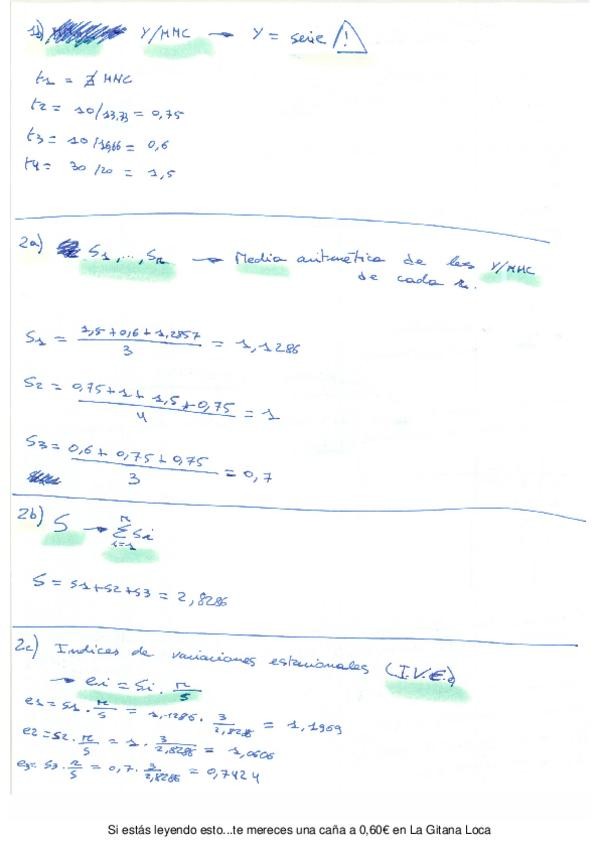 1b) Y/MMC → Y = serie /!\
t1 = ∄ MMC
t2 = 10/13,33 = 0,75
t3 = 10/16,66 = 0,6
t4 = 30/20 = 1,5
2a) S1,...,Sr → Media aritmética de las Y/MMC
de cada r.
S1 = (1,5+0,6+1,2857)/3 = 1,1286
S2 = (0,75+1+1,5+0,75)/4 = 1
S3 = (0,6+0,75+0,75)/3 = 0,7
2b) S → Σ(i=1 → r) Si
S = S1+S2+S3 = 2,8286
2c) Indices de variaciones estacionales (I.V.E.)
→ ei = Si · r/S
e1 = S1 · r/S = 1,1286 · 3/2,8286 = 1,1969
e2 = S2 · r/S = 1 · 3/2,8286 = 1,0606
e3 = S3 · r/S = 0,7 · 3/2,8286 = 0,7424
Si estás leyendo esto...te mereces una caña a 0,60€ en La Gitana Loca